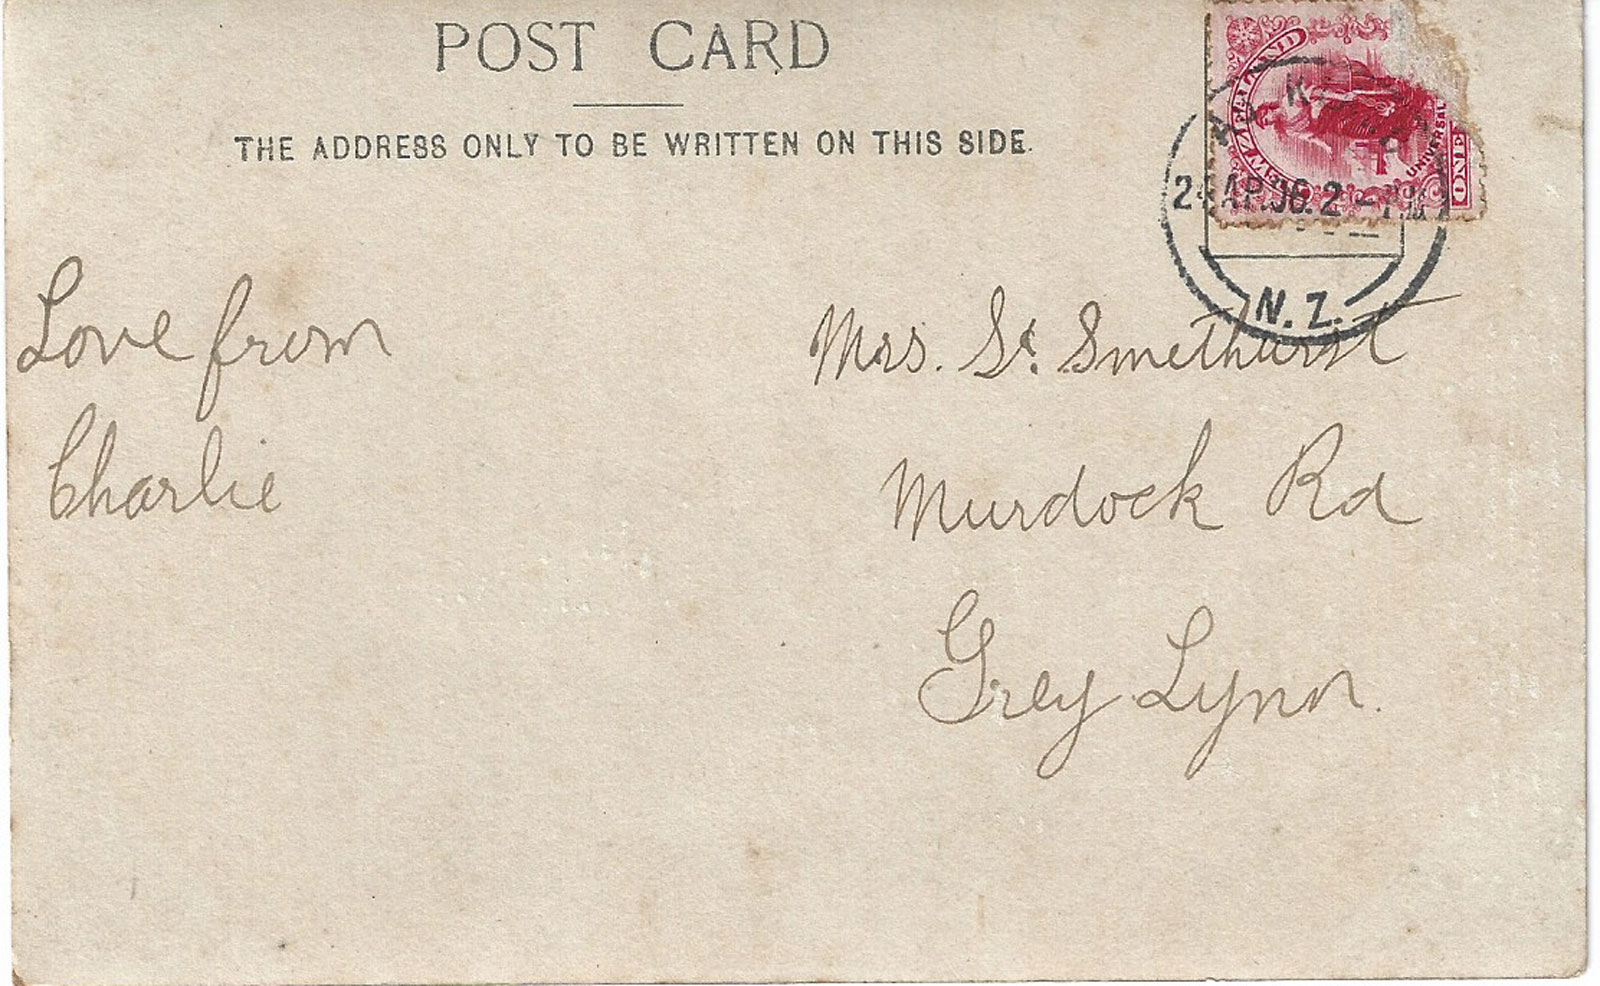 POST CARD
THE ADDRESS ONLY TO BE WRITTEN ON THIS SIDE.
ZEALAND
UNIVERSAL
ONE
AP.06.2
N.Z.
Love from
Charlie
Mrs. St. Smethurst
Murdock Rd
Grey Lynn.